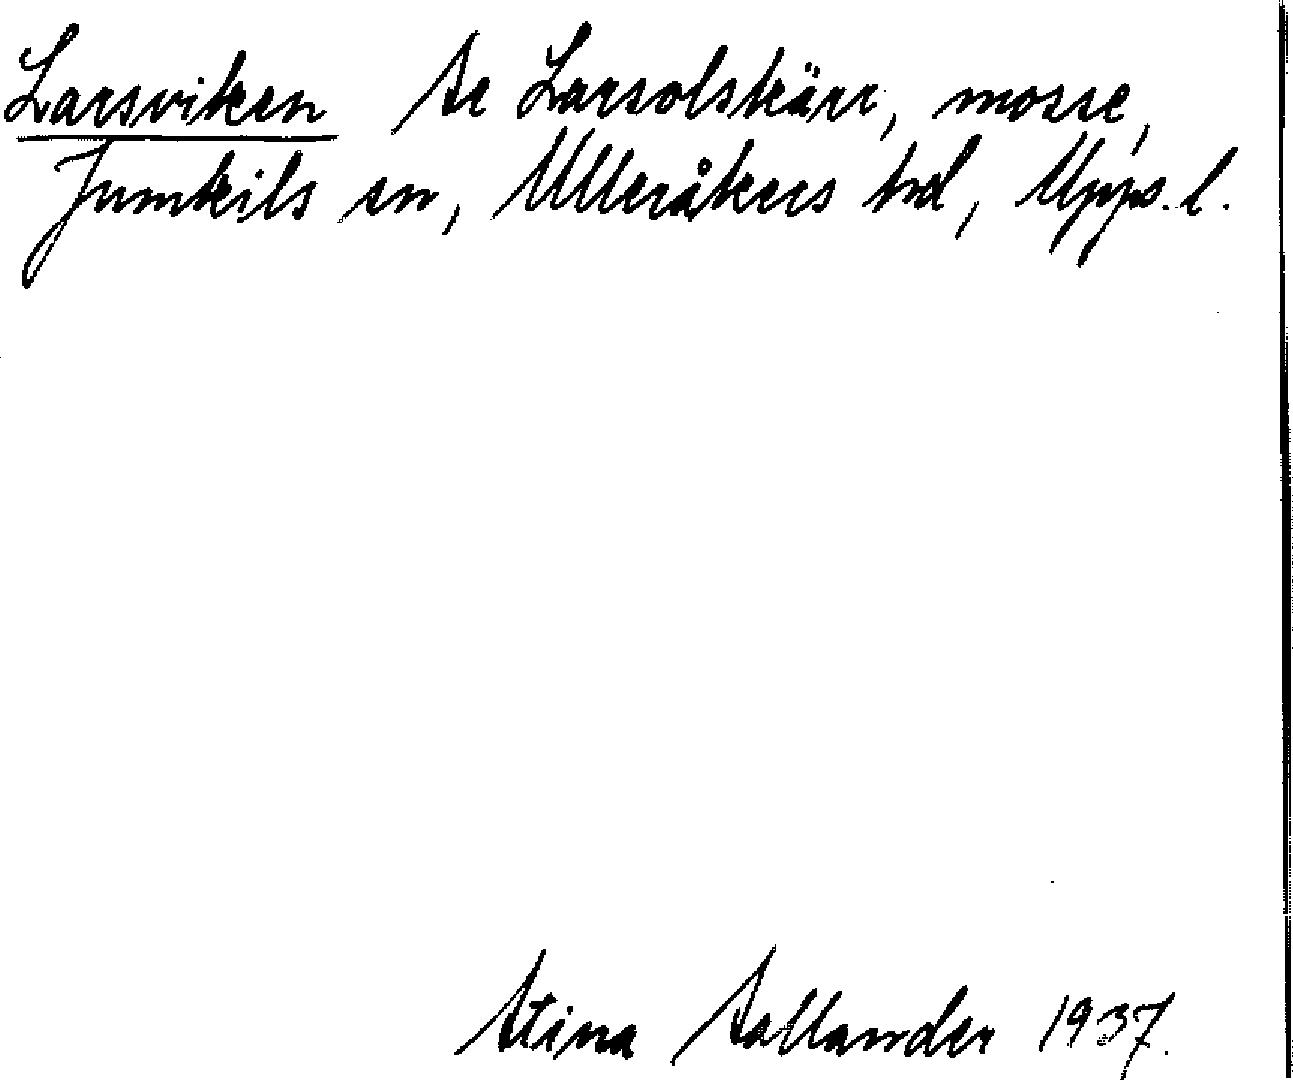 Larsviken Se Larsolskärr, mosse,
Jumkils sn, Ulleråkers hd, Upps. l.
Stina Sellander 1937.